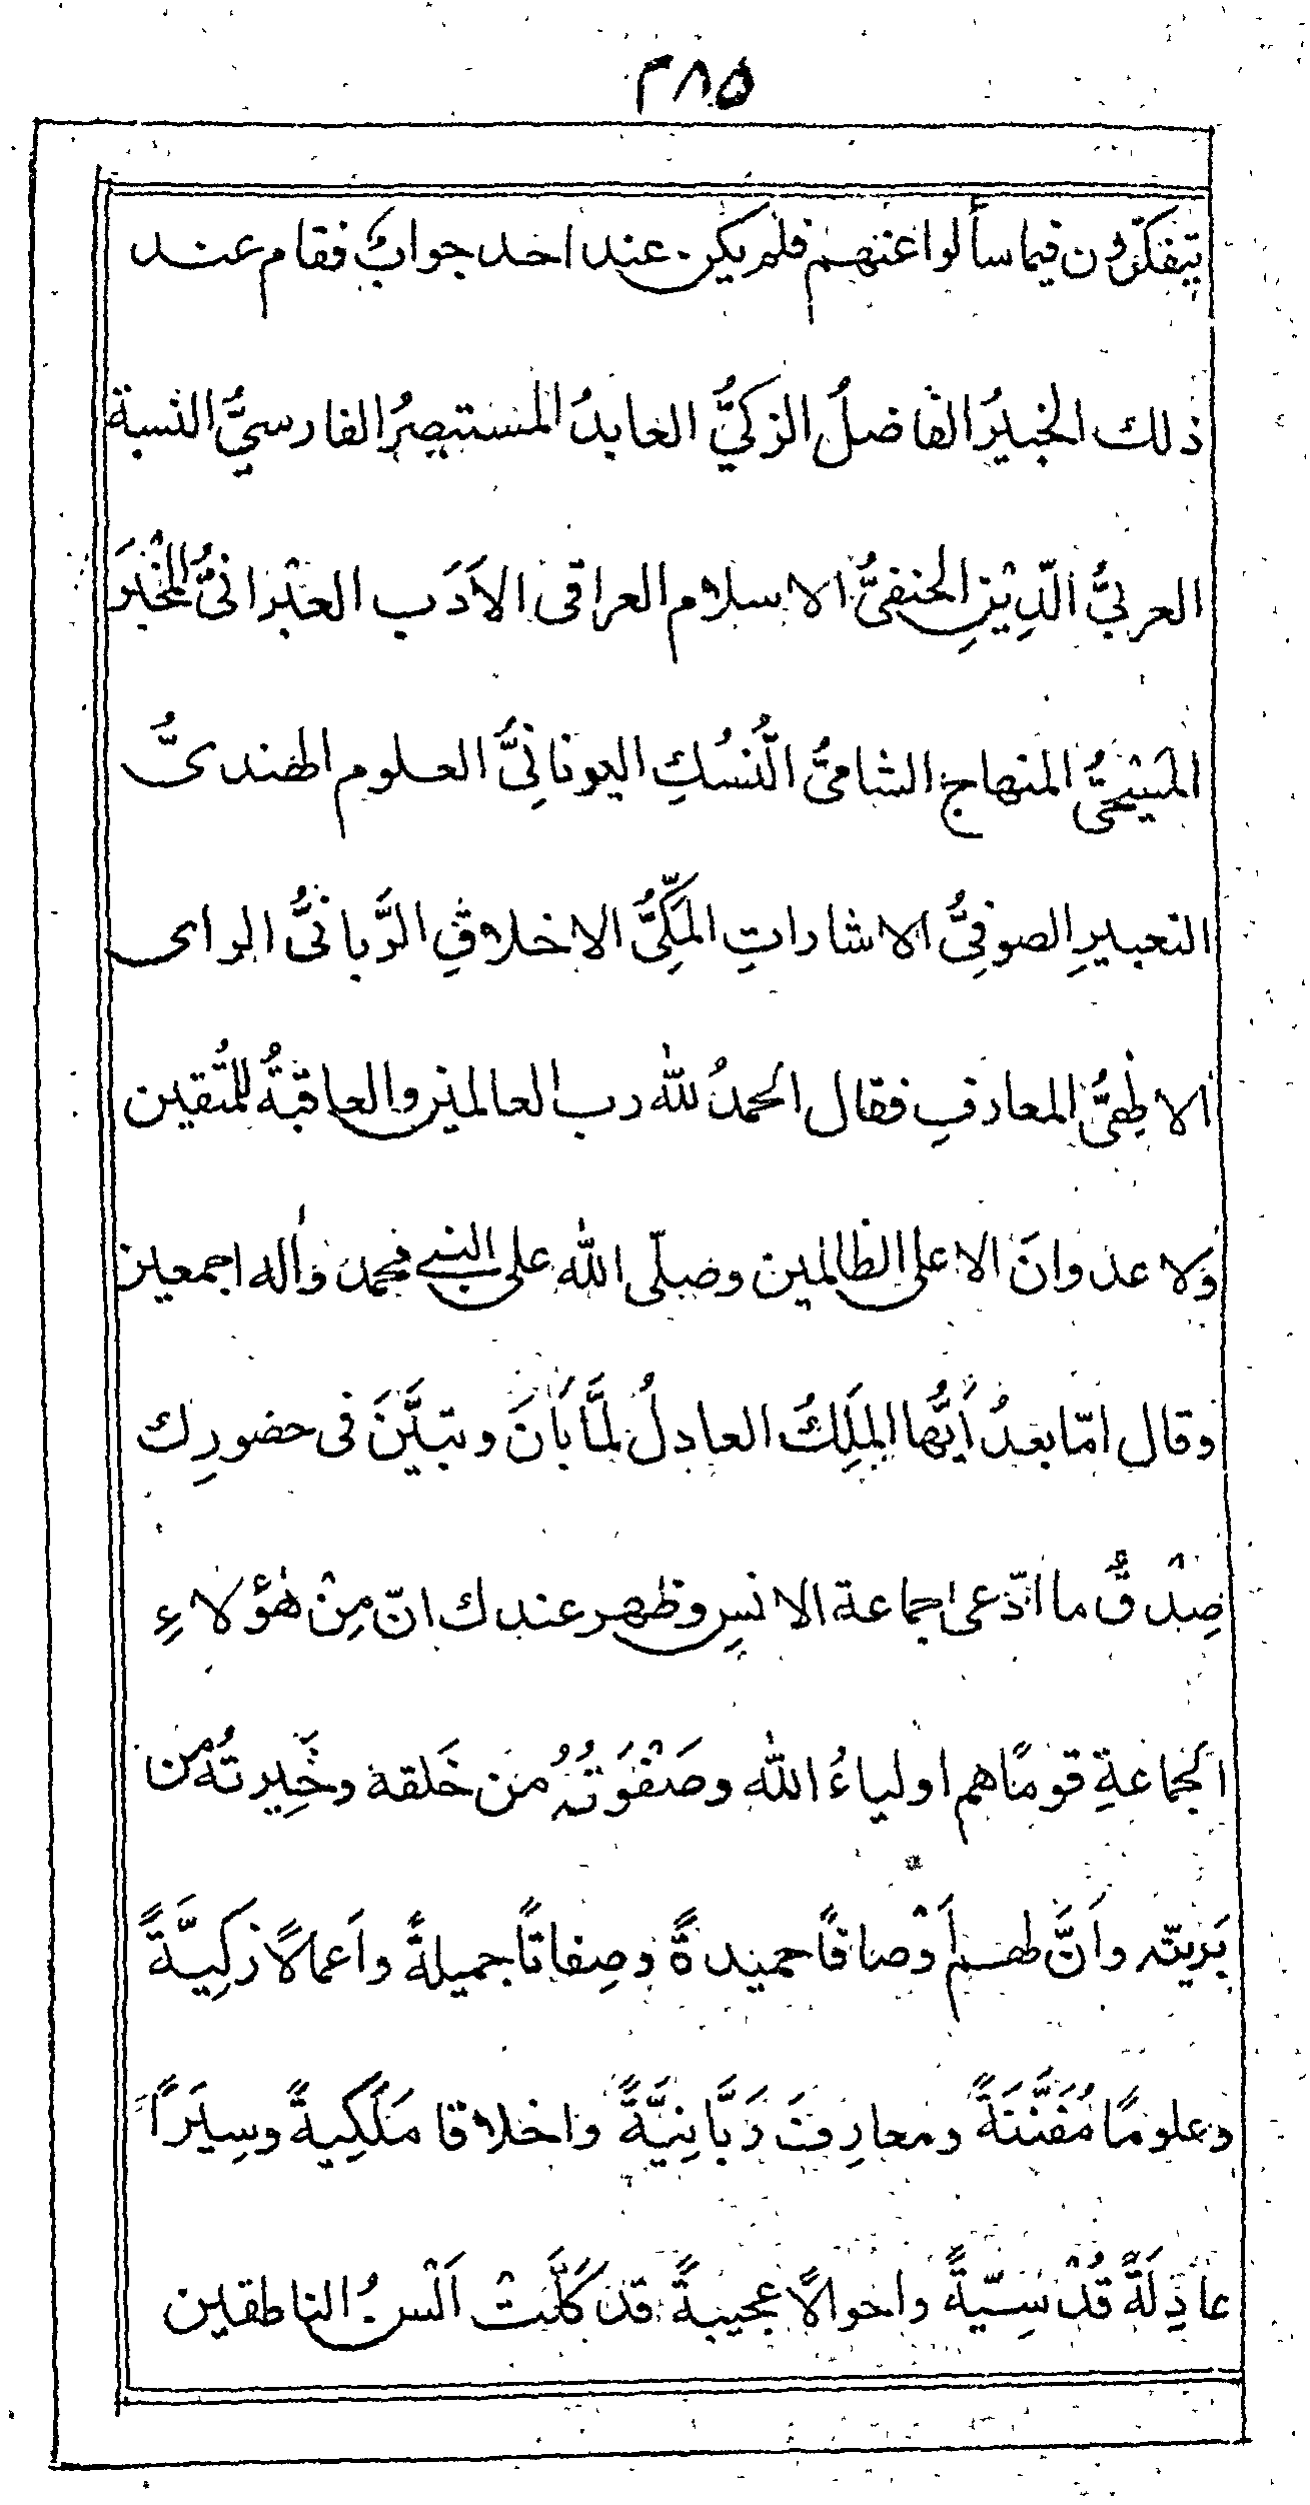 ٣٨٥
يتفكّرون فيما سألوا عنهم فلم يكن عند احد جواب فقام عند
ذلك الخبيرُ الفاضلُ الزكيُّ العابدُ المستبصرُ الفارسيُّ النسبة
العربيُّ الدِّيْنِ الحنفيُّ الاسلام العراقى الاَدَب العبْرانىُّ المُخْبَر
المَسِيْحىُّ المنهاج الشامىُّ النُّسُكِ اليونانِىُّ العلوم الهندىُّ
التعبيرِ الصوفِىُّ الاشاراتِ المَلَكِىُّ الاخلاقِ الرَّبانىُّ الراى
الالٰهىُّ المعارفِ فقال الحمدُ للّٰه رب العالمين والعاقبةُ للمُتّقين
ولا عدوانَ الا على الظالمين وصلّى اللّٰه على النبى محمد واٰله اجمعين
وقال امّا بعدُ اَيُّها المَلِكُ العادلُ لمَّا بَانَ وتبيَّنَ فى حضورِك
صِدْقُ ما ادّعى جماعة الانسِ وظهر عندك انّ مِنْ هٰؤلاءِ
الجماعةِ قومًا هم اولياءُ اللّٰه وصَفْوَتُهُ من خَلقه وخِيَرتُه من
بَرِيّته واَنَّ لهم اَوْصافًا حميدةً وصِفاتًا جميلةً واَعمالًا زكِيَّةً
وعلومًا مُفَنَّنَةً ومعارِفَ رَبَّانِيَّةً واخلاقا مَلَكِيةً وسِيَرًا
عادِلَةً قُدْسِيّةً واحوالًا عجيبةً قد كَلَّتْ اَلْسنُ الناطقين